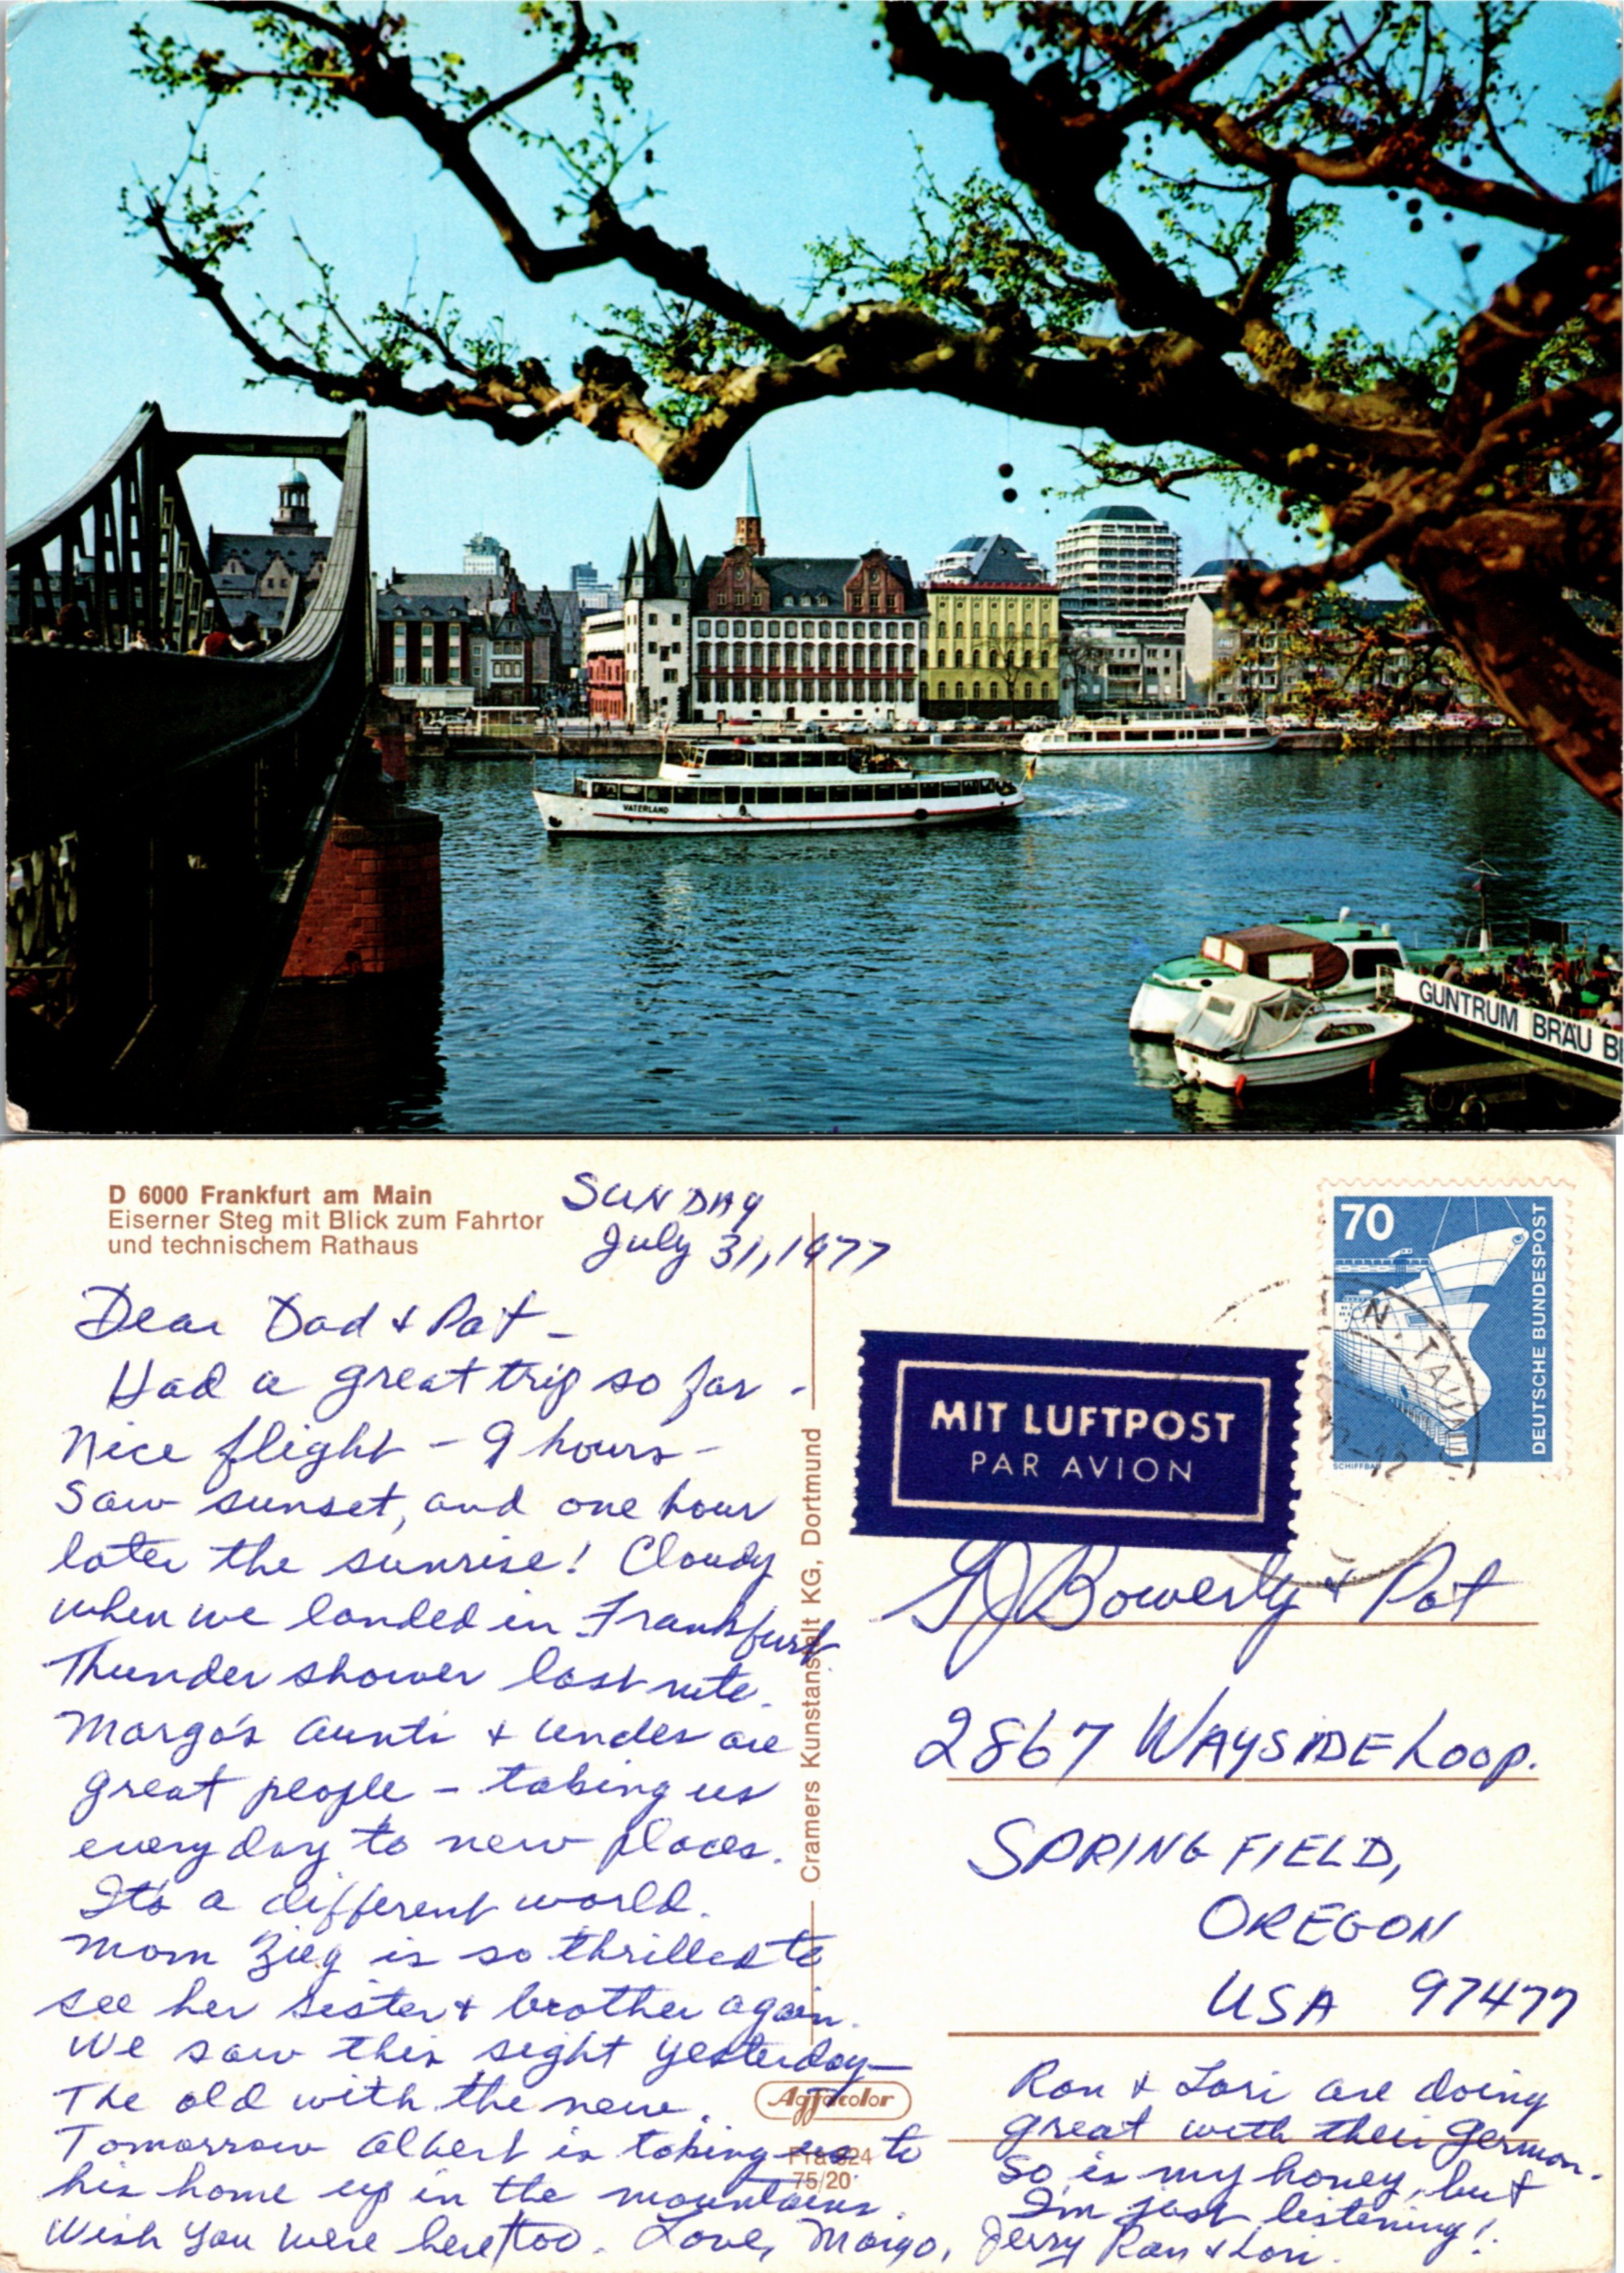 VATERLAND
GUNTRUM BRÄU B
D 6000 Frankfurt am Main
Eiserner Steg mit Blick zum Fahrtor
und technischem Rathaus
SUNDAY
July 31, 1977
Dear Dad & Pat -
Had a great trip so far -
Nice flight - 9 hours -
Saw sunset, and one hour
later the sunrise! Cloudy
when we landed in Frankfurt
Thunder shower last nite.
Margo's aunts & uncles are
great people - taking us
every day to new places.
It's a different world.
Mom Zieg is so thrilled to
see her sister & brother again.
We saw this sight yesterday -
The old with the new.
Tomorrow Albert is taking us to
his home up in the mountains.
Wish you were here too. Love, Margo, Jerry Ron & Lori.
Cramers Kunstanstalt KG, Dortmund
Agfacolor
75/20
70
DEUTSCHE BUNDESPOST
SCHIFFBAU
MIT LUFTPOST
PAR AVION
GJ Bowerly & Pat
2867 WAYSIDE Loop.
SPRINGFIELD,
OREGON
USA 97477
Ron & Lori are doing
great with their German.
So is my honey, but
I'm just listening!